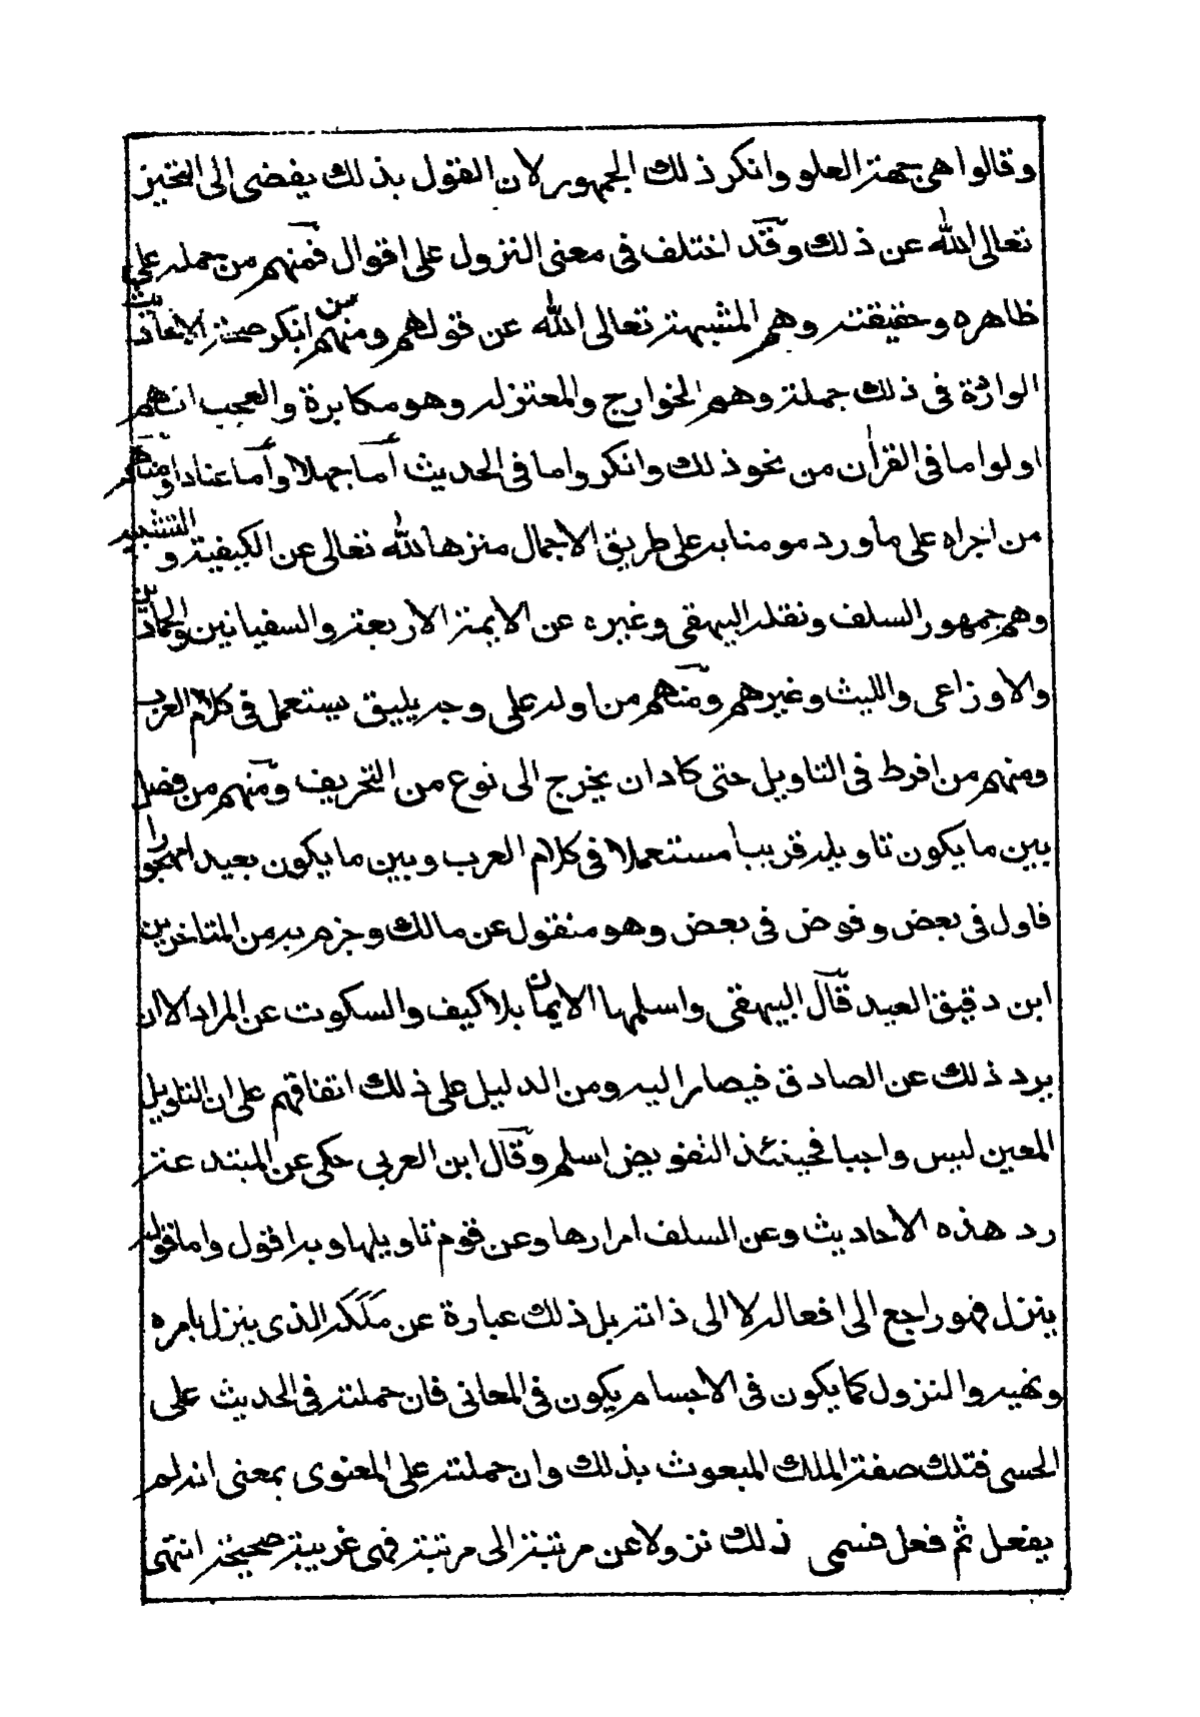 وقالوا هي جهة العلو وانكر ذلك الجمهور لان القول بذلك يفضى الى التحيز
تعالى الله عن ذلك وقد اختلف في معنى النزول على اقوال فمنهم من حمله على
ظاهره وحقيقته وهم المشبهة تعالى الله عن قولهم ومنهم من انكر صحة الاحاديث
الواردة في ذلك جملة وهم الخوارج والمعتزله وهو مكابرة والعجب انهم
اولوا ما في القرأن من نحو ذلك وانكروا ما في الحديث أما جهلا وأما عنادا ومنهم
من اجراه على ما ورد مومنا به على طريق الاجمال منزها لله تعالى عن الكيفية والتشبيه
وهم جمهور السلف ونقله البيهقي وغيره عن الايمة الاربعة والسفيانين والحمادين
والاوزاعى والليث وغيرهم ومنهم من اوله على وجه يليق يستعمل في كلام العرب
ومنهم من افرط في التاويل حتى كاد ان يخرج الى نوع من التحريف ومنهم من فصل
بين ما يكون تاويله قريبا مستعملا في كلام العرب وبين ما يكون بعيدا مهجورا
فاول في بعض وفوض في بعض وهو منقول عن مالك وجزم به من المتاخرين
ابن دقيق العيد قال البيهقى واسلمها الايمان بلا كيف والسكوت عن المراد الا ان
يرد ذلك عن الصادق فيصار اليه ومن الدليل على ذلك اتفاقهم على ان التاويل
المعين ليس واجبا فحينئذ التفويض اسلم وقال ابن العربى حكى عن المبتدعة
رد هذه الاحاديث وعن السلف امرارها وعن قوم تاويلها وبه اقول واما قوله
ينزل فهو راجع الى افعاله لا الى ذاته بل ذلك عبارة عن مَلَكَه الذى ينزل بامره
ونهيه والنزول كما يكون في الاجسام يكون في المعانى فان حملته في الحديث على
الحسى فتلك صفة الملك المبعوث بذلك وان حملته على المعنوى بمعنى انه لم
يفعل ثم فعل فسمى ذلك نزولا عن مرتبة الى مرتبة فهى غريبة صحيحة انتهى